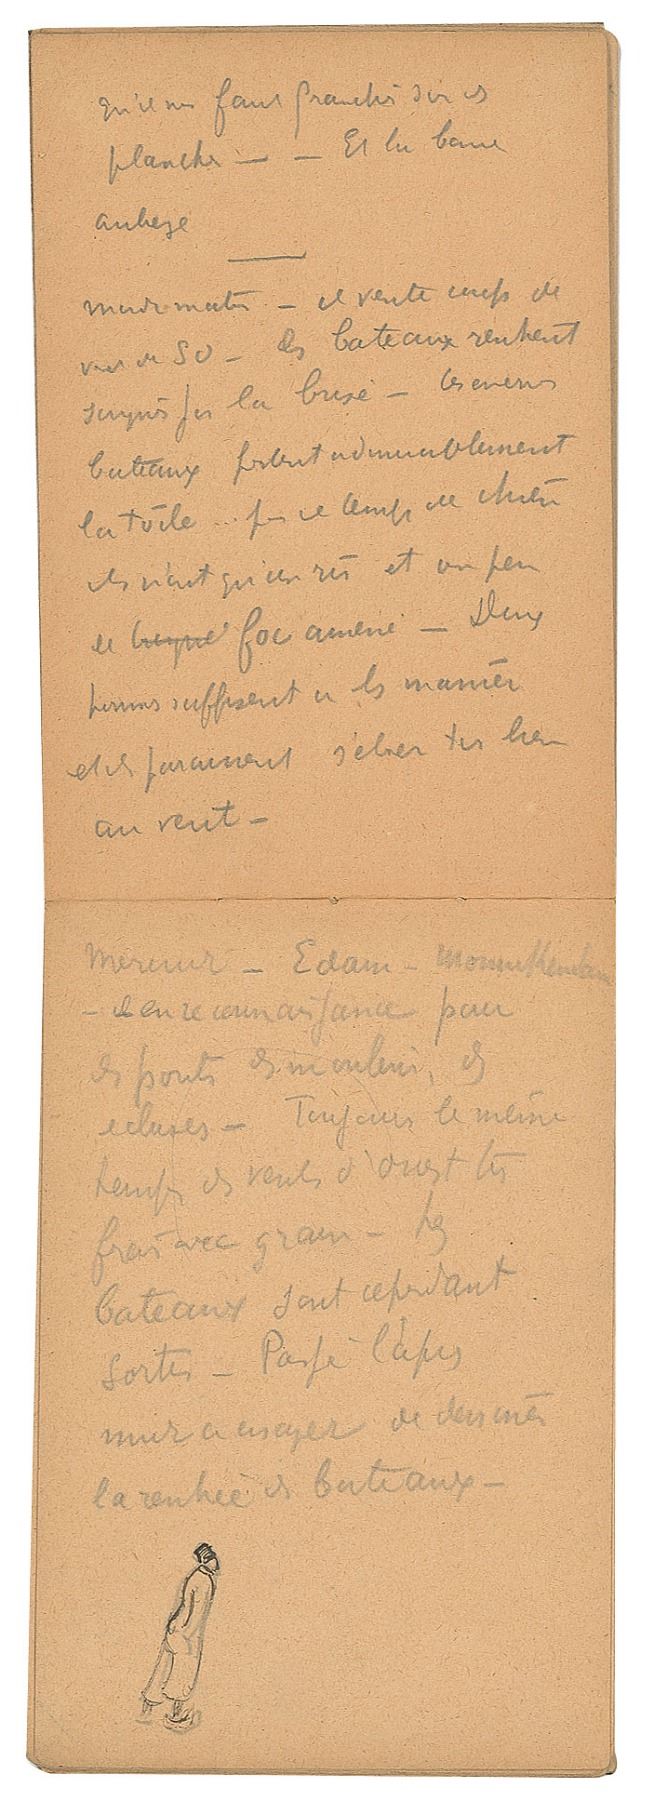 qu'il nous faut franchir sur des
planches — — Et la bonne
auberge
mardi matin — il vente coups de
vent de SO — les bateaux rentrent
par la brise — les
bateaux portent admirablement
la toile ... par ce temps de chien
ils n'ont qu'un ris et un peu
de foc amené — Deux
hommes suffisent à les manier
et ils paraissent s'élever très bien
au vent —
Mercredi — Edam — Monnikendam
— en reconnaissance pour
des ponts des moulins, des
écluses — Toujours le même
temps des vents d'ouest très
frais avec grain — les
bateaux sont cependant
sortis — Passé l'après
midi à essayer de dessiner
la rentrée des bateaux —